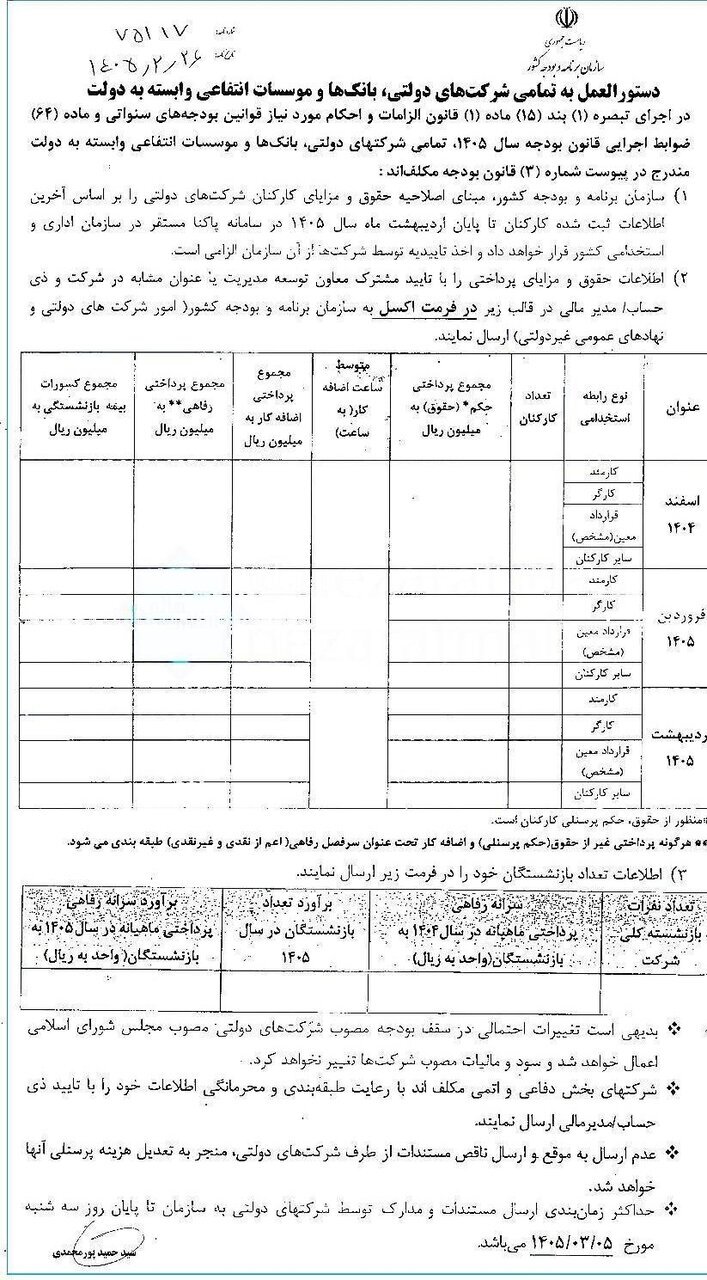 ریاست جمهوری
سازمان برنامه و بودجه کشور
شماره نامه: ۷۵۱۱۷
تاریخ نامه: ۱۴۰۵/۲/۲۶
دستورالعمل به تمامی شرکت‌های دولتی، بانک‌ها و موسسات انتفاعی وابسته به دولت
در اجرای تبصره (۱) بند (۱۵) ماده (۱) قانون الزامات و احکام مورد نیاز قوانین بودجه‌های سنواتی و ماده (۶۴)
ضوابط اجرایی قانون بودجه سال ۱۴۰۵، تمامی شرکتهای دولتی، بانک‌ها و موسسات انتفاعی وابسته به دولت
مندرج در پیوست شماره (۳) قانون بودجه مکلف‌اند:
۱) سازمان برنامه و بودجه کشور، مبنای اصلاحیه حقوق و مزایای کارکنان شرکت‌های دولتی را بر اساس آخرین
اطلاعات ثبت شده کارکنان تا پایان اردیبهشت ماه سال ۱۴۰۵ در سامانه پاکنا مستقر در سازمان اداری و
استخدامی کشور قرار خواهد داد و اخذ تاییدیه توسط شرکت‌ها از آن سازمان الزامی است.
۲) اطلاعات حقوق و مزایای پرداختی را با تایید مشترک معاون توسعه مدیریت یا عنوان مشابه در شرکت و ذی
حساب/ مدیر مالی در قالب زیر در فرمت اکسل به سازمان برنامه و بودجه کشور( امور شرکت های دولتی و
نهادهای عمومی غیردولتی) ارسال نمایند.
عنوان
نوع رابطه
استخدامی
تعداد
کارکنان
مجموع پرداختی
حکم* (حقوق) به
میلیون ریال
متوسط
ساعت اضافه
کار( به
ساعت)
مجموع
پرداختی
اضافه کار به
میلیون ریال
مجموع پرداختی
رفاهی** به
میلیون ریال
مجموع کسورات
بیمه بازنشستگی به
میلیون ریال
اسفند
۱۴۰۴
کارمند
کارگر
قرارداد
معین(مشخص)
سایر کارکنان
فروردین
۱۴۰۵
کارمند
کارگر
قرارداد معین
(مشخص)
سایر کارکنان
ردیبهشت
۱۴۰۵
کارمند
کارگر
قرارداد معین
(مشخص)
سایر کارکنان
*منظور از حقوق، حکم پرسنلی کارکنان است.
** هرگونه پرداختی غیر از حقوق(حکم پرسنلی) و اضافه کار تحت عنوان سرفصل رفاهی( اعم از نقدی و غیرنقدی) طبقه بندی می شود.
۳) اطلاعات تعداد بازنشستگان خود را در فرمت زیر ارسال نمایند.
تعداد نفرات
بازنشسته کلی
شرکت
سرانه رفاهی
پرداختی ماهیانه در سال ۱۴۰۴ به
بازنشستگان(واحد به ریال)
برآورد تعداد
بازنشستگان در سال
۱۴۰۵
برآورد سرانه رفاهی
پرداختی ماهیانه در سال ۱۴۰۵ به
بازنشستگان( واحد به ریال)
❖ بدیهی است تغییرات احتمالی در سقف بودجه مصوب شرکت‌های دولتی مصوب مجلس شورای اسلامی
اعمال خواهد شد و سود و مالیات مصوب شرکت‌ها تغییر نخواهد کرد.
❖ شرکتهای بخش دفاعی و اتمی مکلف اند با رعایت طبقه‌بندی و محرمانگی اطلاعات خود را با تایید ذی
حساب/مدیرمالی ارسال نمایند.
❖ عدم ارسال به موقع و ارسال ناقص مستندات از طرف شرکت‌های دولتی، منجر به تعدیل هزینه پرسنلی آنها
خواهد شد.
❖ حداکثر زمان‌بندی ارسال مستندات و مدارک توسط شرکتهای دولتی به سازمان تا پایان روز سه شنبه
مورخ ۱۴۰۵/۰۳/۰۵ می‌باشد.
سید حمید پورمحمدی